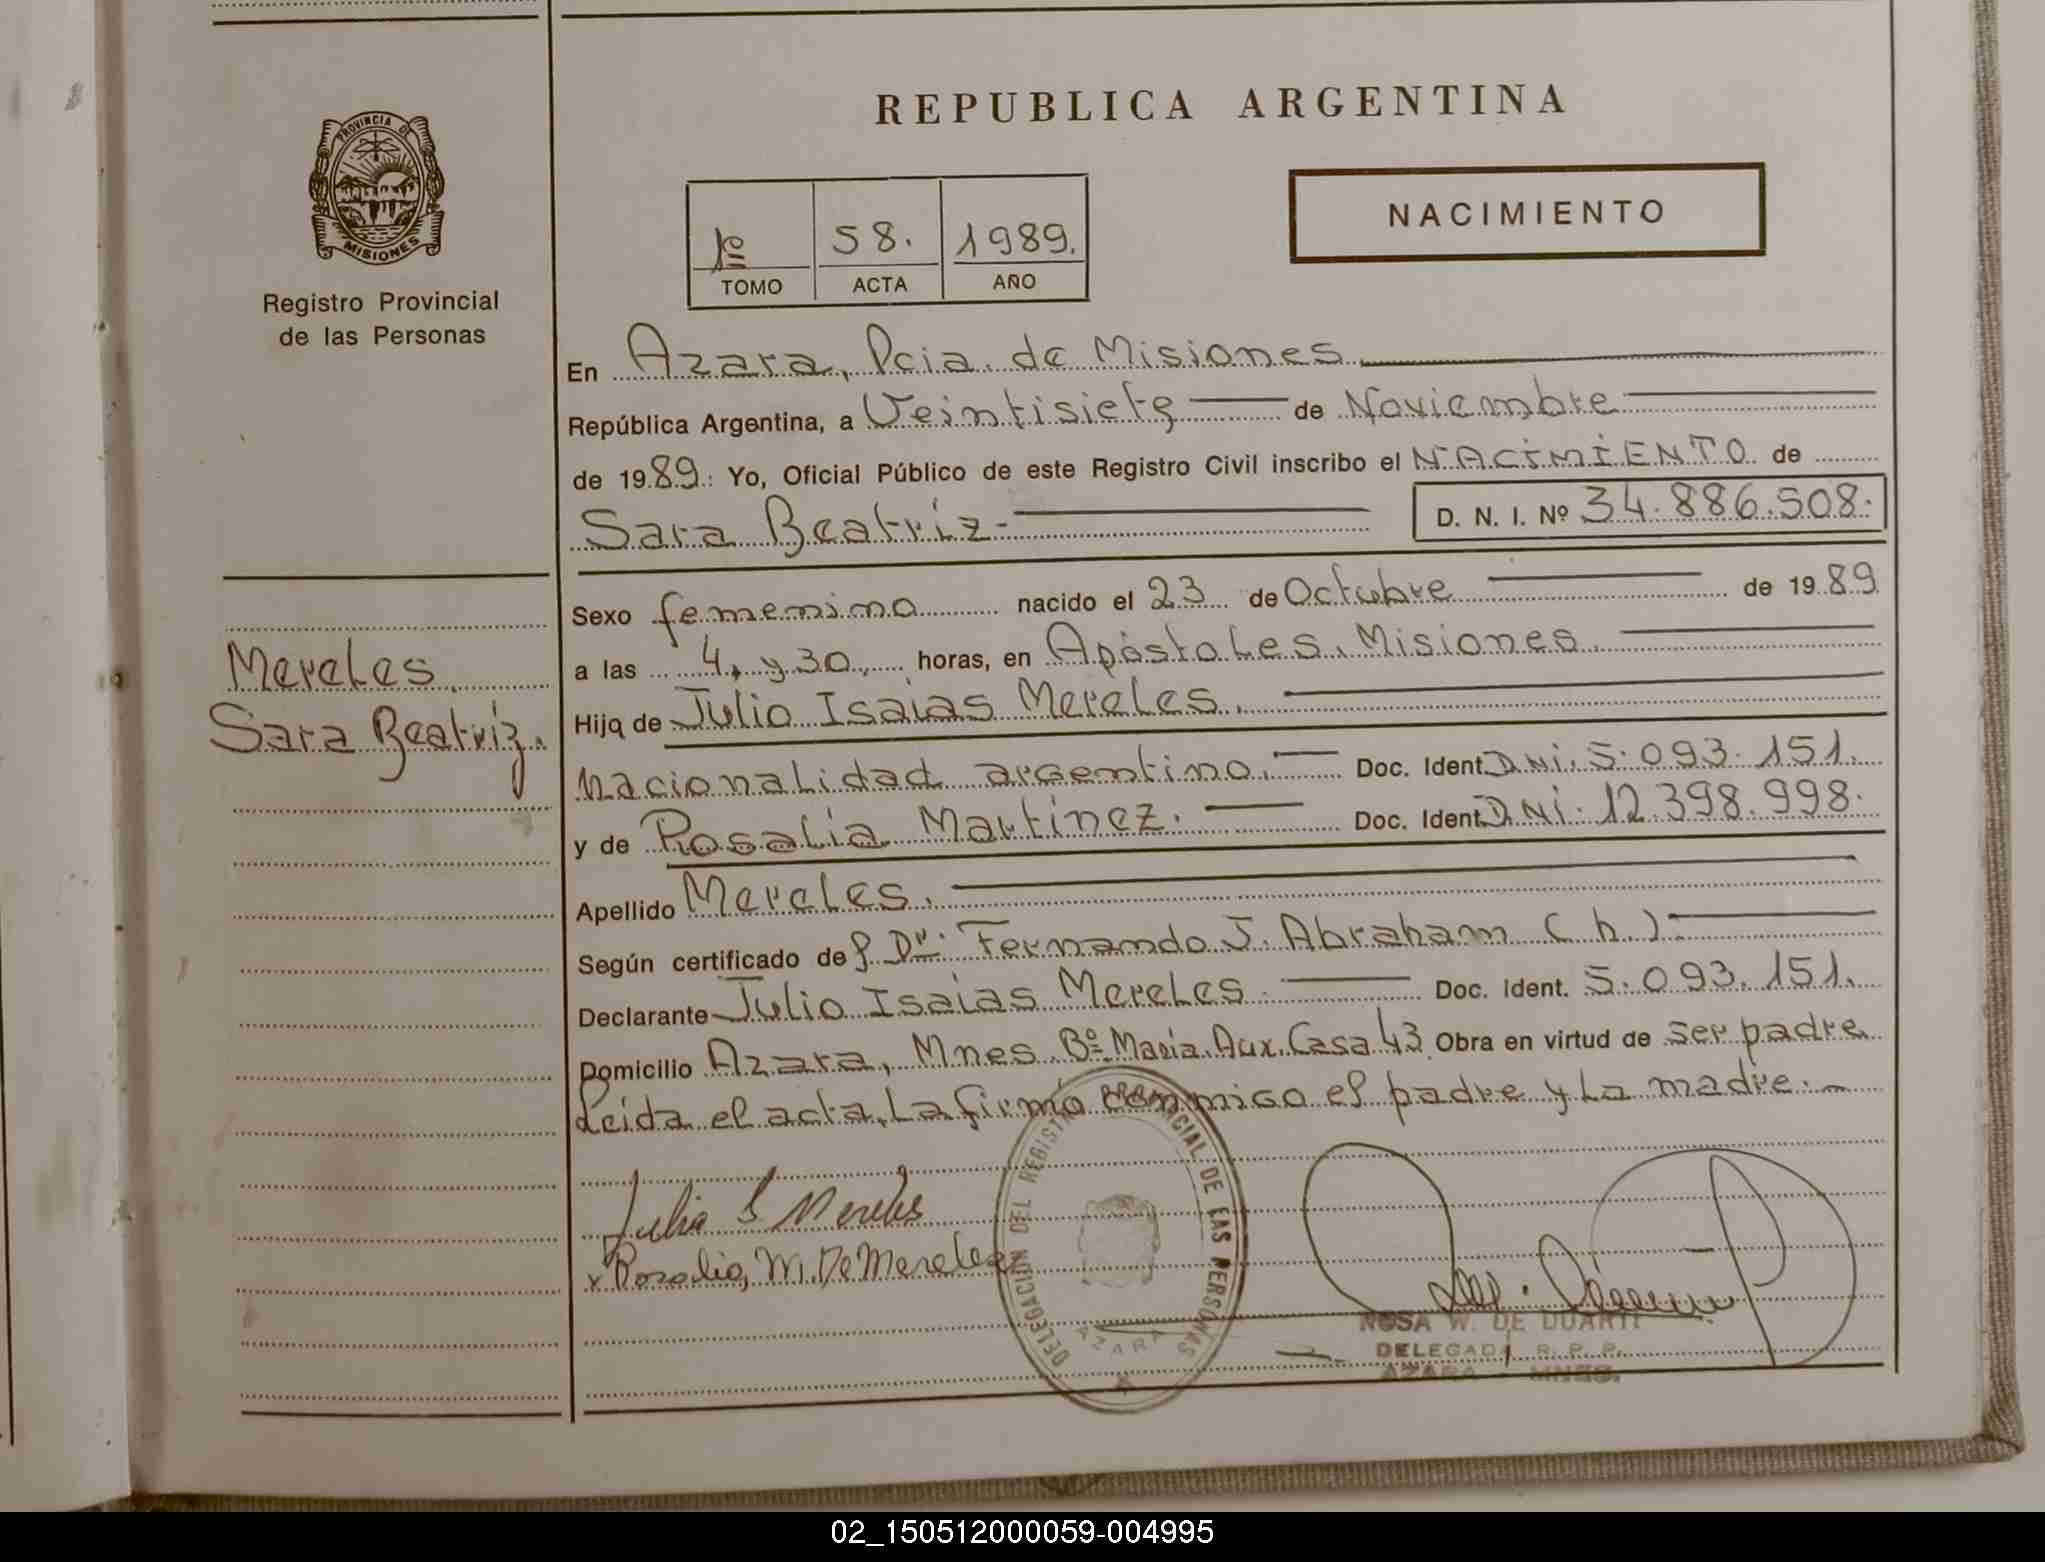 PROVINCIA DE
MISIONES
Registro Provincial
de las Personas
Mereles
Sara Beatriz.
REPUBLICA ARGENTINA
1º 58. 1989.
TOMO ACTA AÑO
NACIMIENTO
En Azara, Pcia. de Misiones
República Argentina, a Veintisiete de Noviembre
de 1989: Yo, Oficial Público de este Registro Civil inscribo el NACIMIENTO de
Sara Beatriz- D. N. I. Nº 34.886.508.
Sexo femenino nacido el 23 de Octubre de 1989
a las 4, y 30, horas, en Apóstoles, Misiones.
Hija de Julio Isaias Mereles.
Nacionalidad argentino. Doc. Ident. DNI. 5.093.151.
y de Rosalía Martínez. Doc. Ident. DNI. 12.398.998.
Apellido Mereles.
Según certificado del Dr. Fernando J. Abraham (h.)
Declarante Julio Isaias Mereles Doc. Ident. 5.093.151.
Domicilio Azara, Mnes. Bº María Aux. Casa 43 Obra en virtud de ser padre
Leida el acta, La firmó conmigo el padre y La madre.
Julio I Mereles
x Rosalia, M. De Mereles
DELEGACION DEL REGISTRO PROVINCIAL DE LAS PERSONAS
AZARA
ROSA W. DE DUARTE
DELEGADA R. P. P.
AZARA - MNES.
02_150512000059-004995